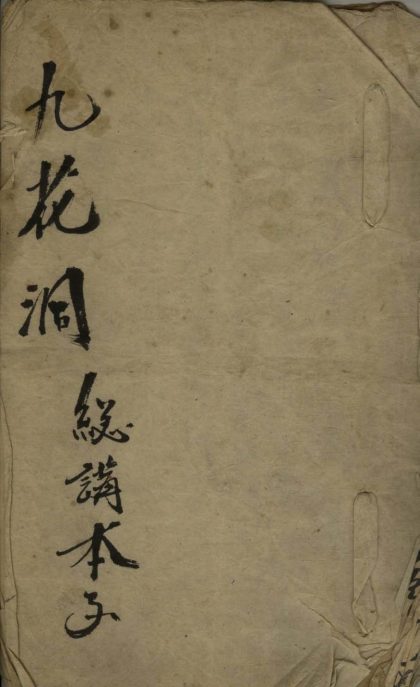 九花洞
緫講本子